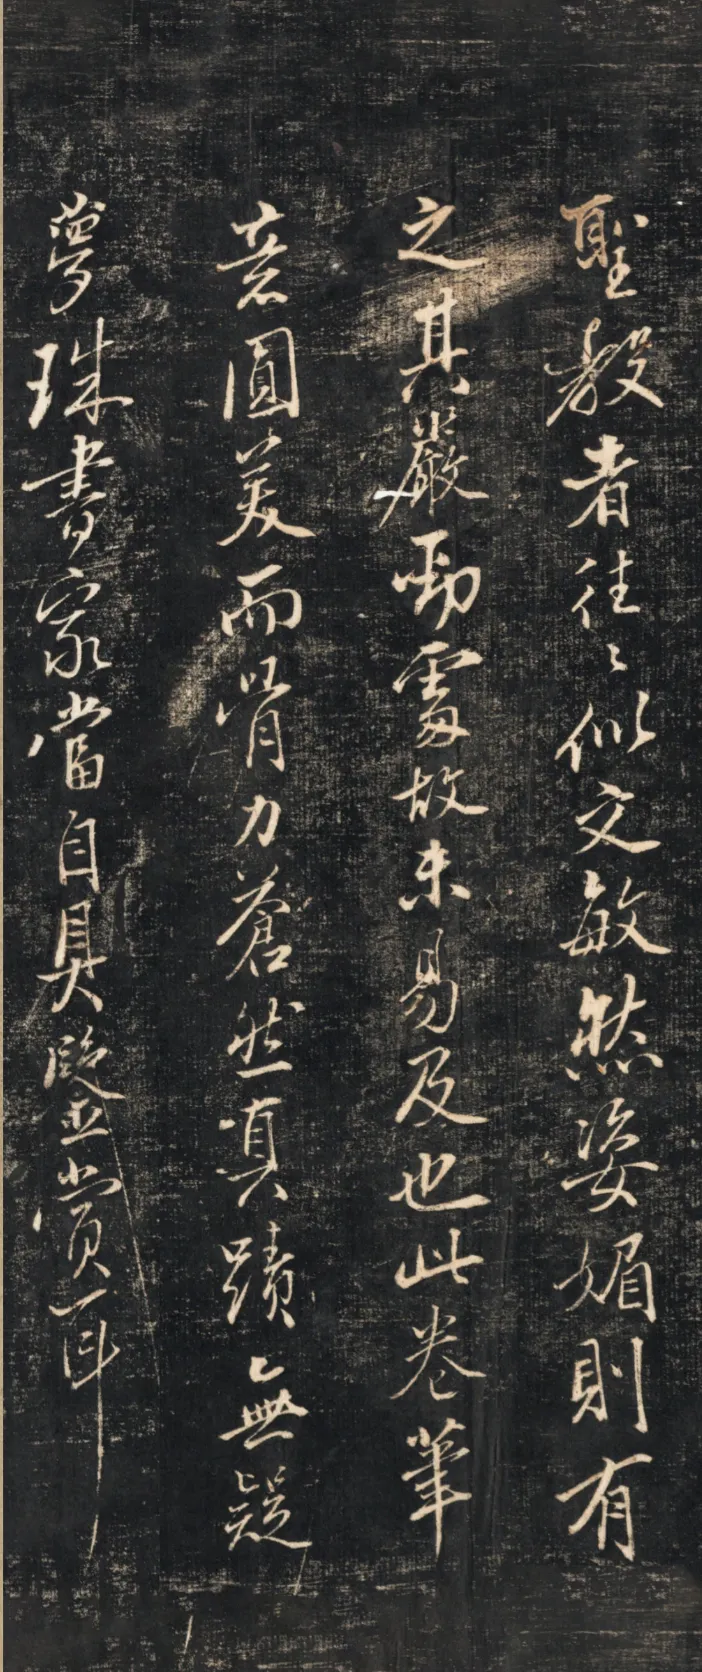 聖教者往〻似文敏然姿媚則有
之其嚴勁處故未易及也此卷筆
意圓美而骨力蒼然真蹟無疑
夢珠書家當自具鑒賞耳